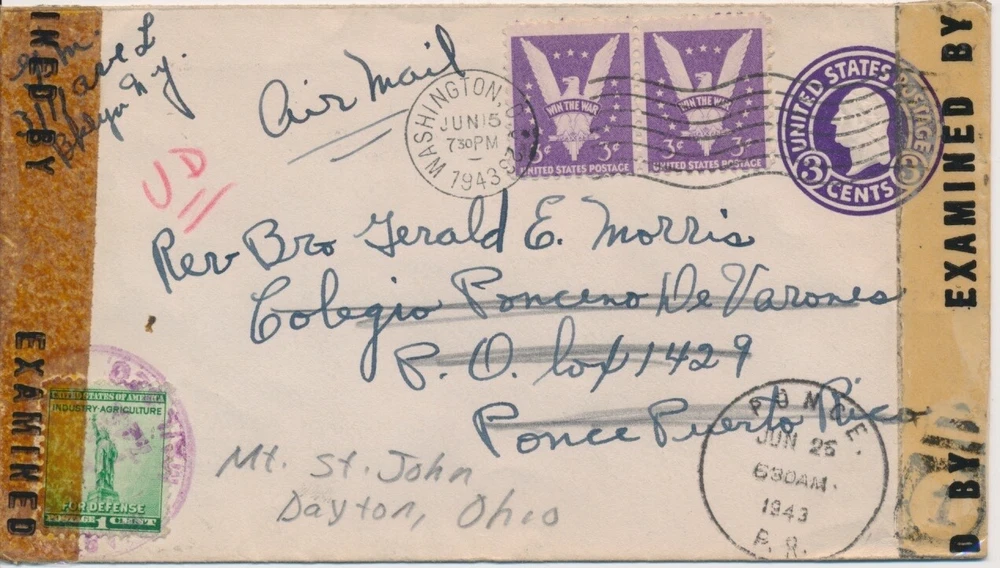 Air Mail
UD
WASHINGTON, D.C.
JUN 15
7 30 PM
1943
WIN THE WAR
3¢
UNITED STATES POSTAGE
WIN THE WAR
3¢ 3¢
UNITED STATES POSTAGE
UNITED STATES POSTAGE
3 CENTS 3
Rev Bro Gerald E. Morris
Colegio Ponceno De Varones
P. O. box 1429
Ponce Puerto Rico
Mt. St. John
Dayton, Ohio
PONCE,
JUN 25
630AM.
1943
P. R.
UNITED STATES OF AMERICA
INDUSTRY-AGRICULTURE
FOR DEFENSE
POSTAGE 1 CENT
INED BY
EXAMINED
EXAMINED BY
D BY